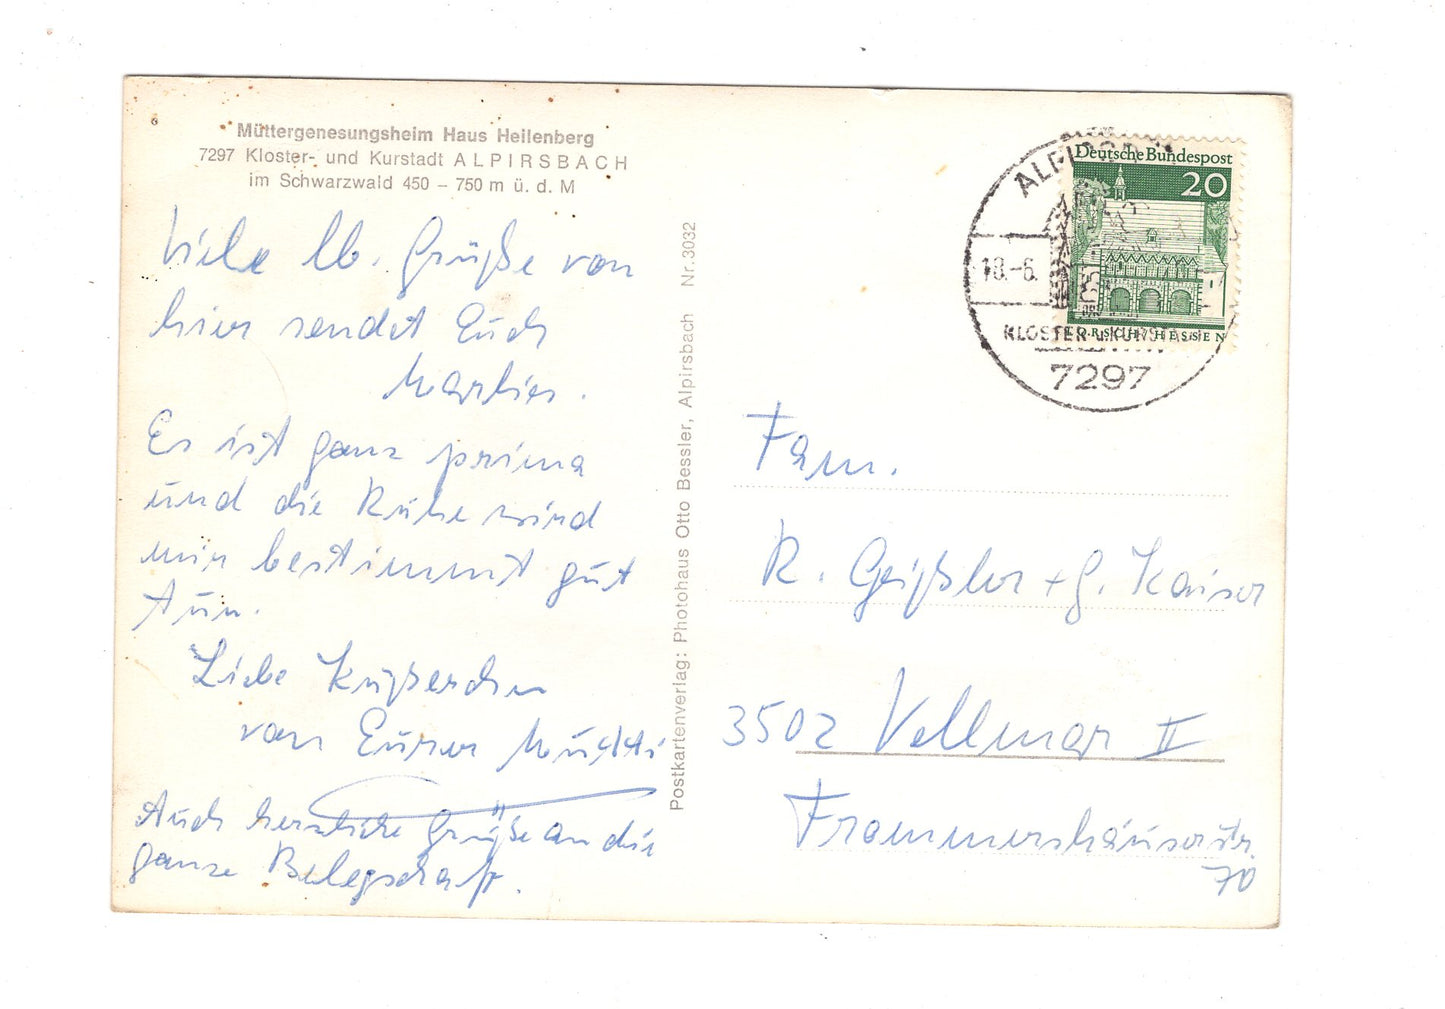 Müttergenesungsheim Haus Heilenberg
7297 Kloster- und Kurstadt ALPIRSBACH
im Schwarzwald 450 – 750 m ü. d. M
Viele lb. Grüße von
hier sendet Euch
Marlies.
Es ist ganz prima
und die Ruhe wird
mir bestimmt gut
tun.
Liebe Küßerchen
von Eurer Mutti
Auch herzliche Grüße an die
ganze Belegschaft.
Postkartenverlag: Photohaus Otto Bessler, Alpirsbach Nr.3032
Deutsche Bundespost
20
LORSCH/HESSEN
18.-6.
KLOSTER- u. KURSTADT
7297
Fam.
R. Geißler + G. Kaiser
3502 Vellmar II
Frommershäuserstr.
70